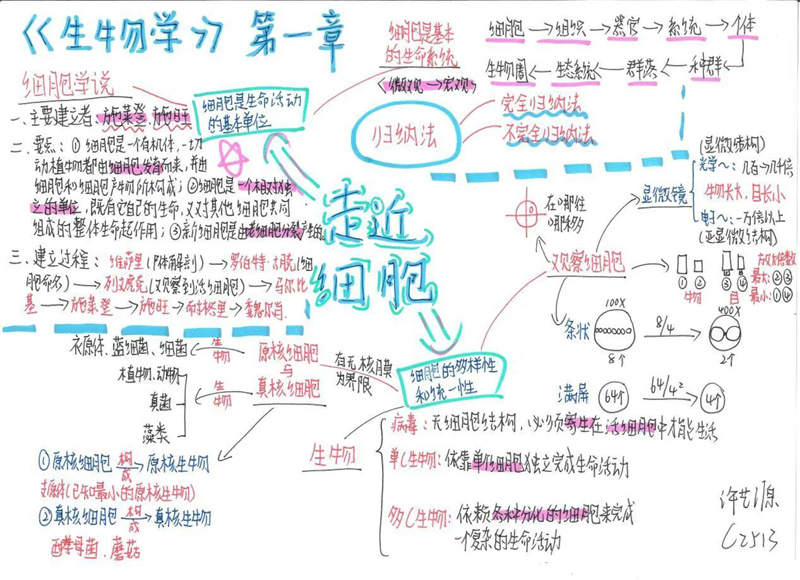 《生物学》 第一章
细胞学说
一、主要建立者：施莱登、施旺
二、要点：①细胞是一个有机体，一切
动植物都由细胞发育而来，并由
细胞和细胞产物所构成；②细胞是一个相对独
立的单位，既有它自己的生命，又对其他细胞共同
组成的整体生命起作用；③新细胞是由老细胞分裂产生的
三、建立过程：维萨里(尸体解剖)→罗伯特·胡克(细
胞命名)→列文虎克(观察到活细胞)→马尔比
基→施莱登→施旺→耐格里→魏尔肖
细胞是生命活动
的基本单位
细胞是基本
的生命系统
<微观→宏观>
细胞→组织→器官→系统→个体
生物圈←生态系统←群落←种群
归纳法
完全归纳法
不完全归纳法
走近
细胞
在哪往
哪移
观察细胞
显微镜
(显微结构)
光学~：几百~几千倍
物长大，目长小
电子~：一万倍以上
(亚显微结构)
① ② ③ ④
物 目
放大倍数
最大：②③
最小：①④
条状
100X
8个
8/4
400X
2个
满屏
64个
64/4²
4个
细胞的多样性
和统一性
有无核膜
为界限
原核细胞
与
真核细胞
生物
衣原体、蓝细菌、细菌
生物
植物、动物
真菌
藻类
①原核细胞 构成→原核生物
支原体(已知最小的原核生物)
②真核细胞 构成→真核生物
酵母菌、蘑菇
生物
病毒：无细胞结构，必须寄生在活细胞中才能生活
单C生物：依靠单细胞独立完成生命活动
多C生物：依赖各种分化的细胞来完成
一个复杂的生命活动
C2513